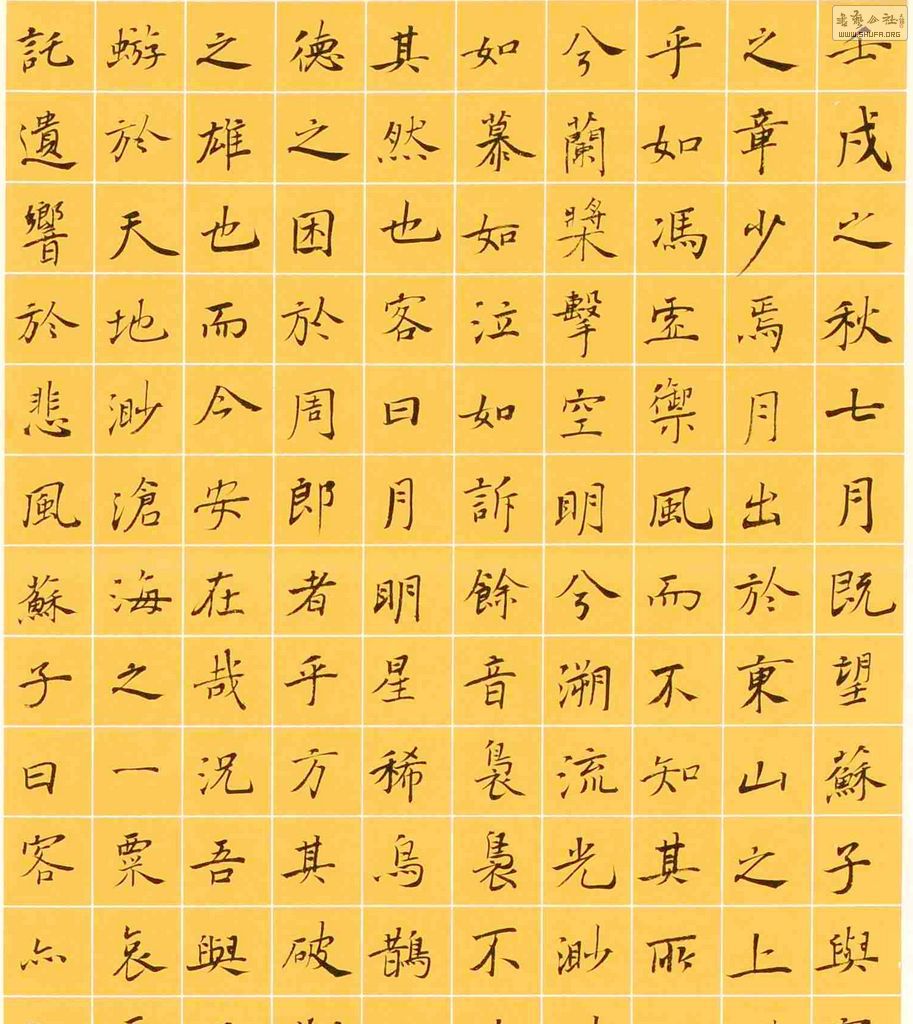 壬戌之秋七月既望蘇子與
之章少焉月出於東山之上
乎如馮虛御風而不知其所
兮蘭槳擊空明兮溯流光渺
如慕如泣如訴餘音裊裊不
其然也客曰月明星稀烏鵲
德之困於周郎者乎方其破
之雄也而今安在哉況吾與
蝣於天地渺滄海之一粟哀
託遺響於悲風蘇子曰客亦
WWW.SHUFA.ORG